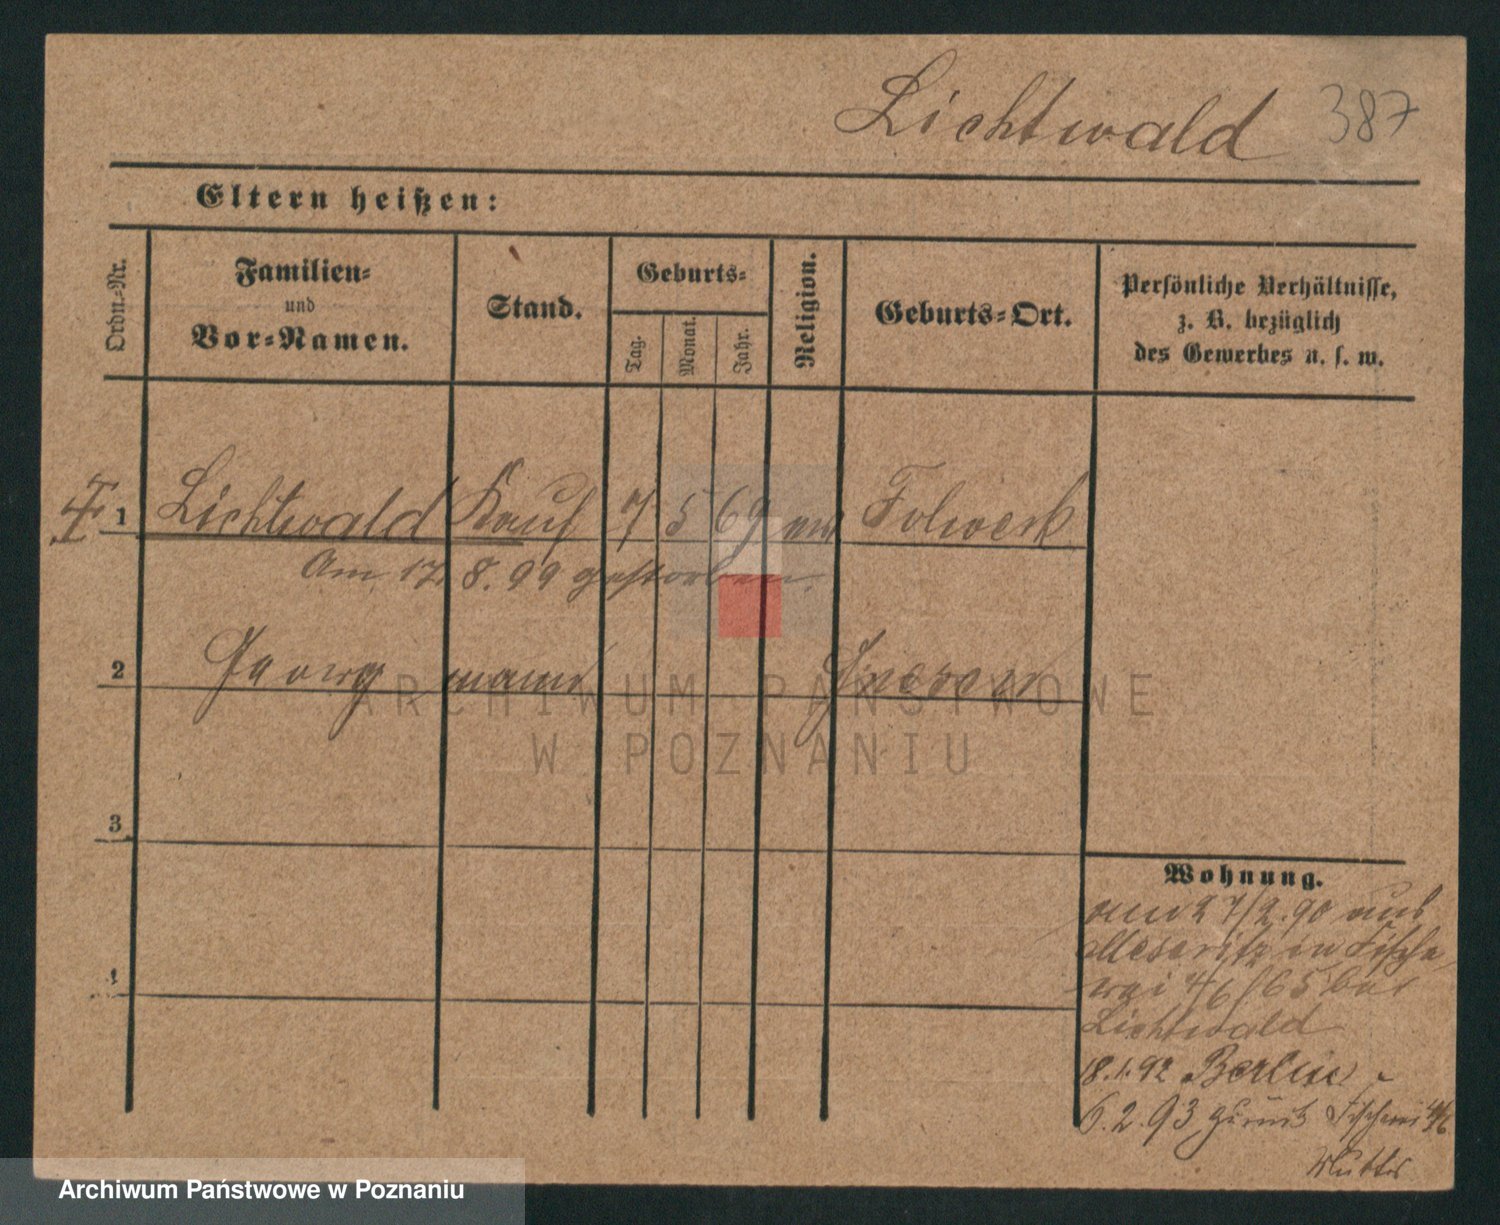 Lichtwald 387
Eltern heißen:
Ordn.-Nr.
Familien-
und
Vor-Namen.
Stand.
Geburts-
Tag.
Monat.
Jahr.
Religion.
Geburts-Ort.
Persönliche Verhältnisse,
z. B. bezüglich
des Gewerbes u. s. w.
1 Lichtwald Kauf 7 5 69 Folwerk
Am 17. 8. 99 gestorben.
2 Georg mann
3
4
Wohnung.
27/2.90 aus
Meseritz in Fische
rei 4/6/65 bei
Lichtwald
18.1.92 Berlin
6.2.93 zurück Fischerei 4/6
Mutter
ARCHIWUM PAŃSTWOWE
W POZNANIU
Archiwum Państwowe w Poznaniu